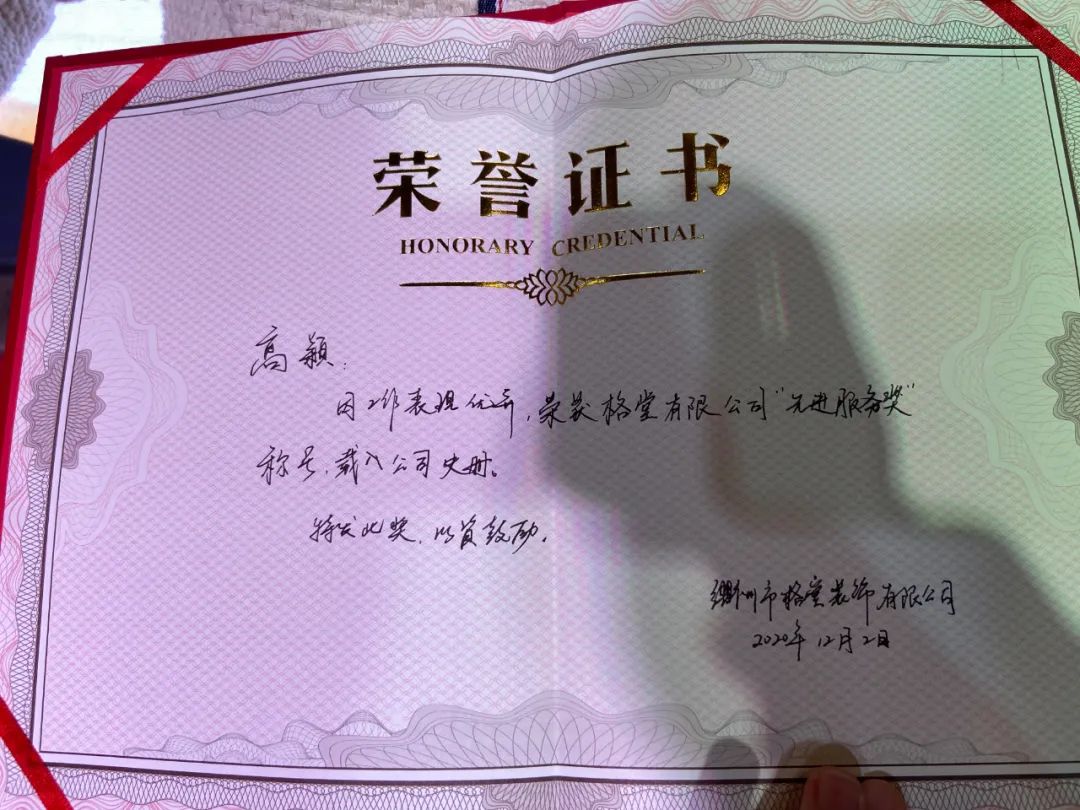 荣誉证书
HONORARY CREDENTIAL
高颖：
因工作表现优异，荣获格堂有限公司“先进服务奖”
称号，载入公司史册。
特发此奖，以资鼓励。
州市格堂装饰有限公司
2020年12月2日